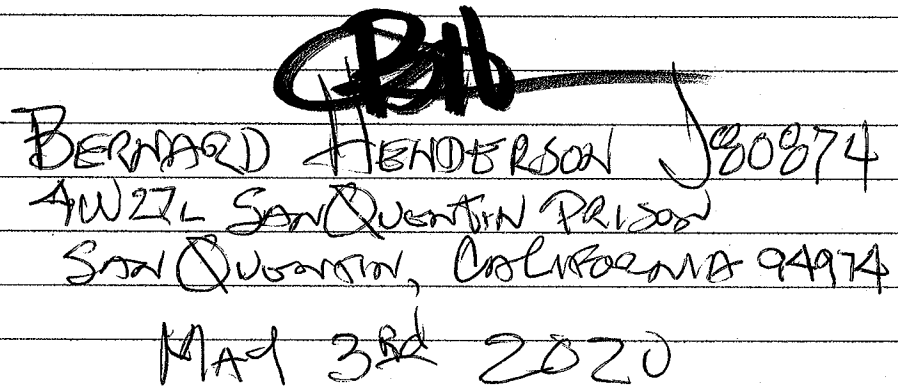 BH
BERNARD HENDERSON J80874
4W27L SAN QUENTIN PRISON
SAN QUENTIN, CALIFORNIA 94974
MAY 3RD 2020